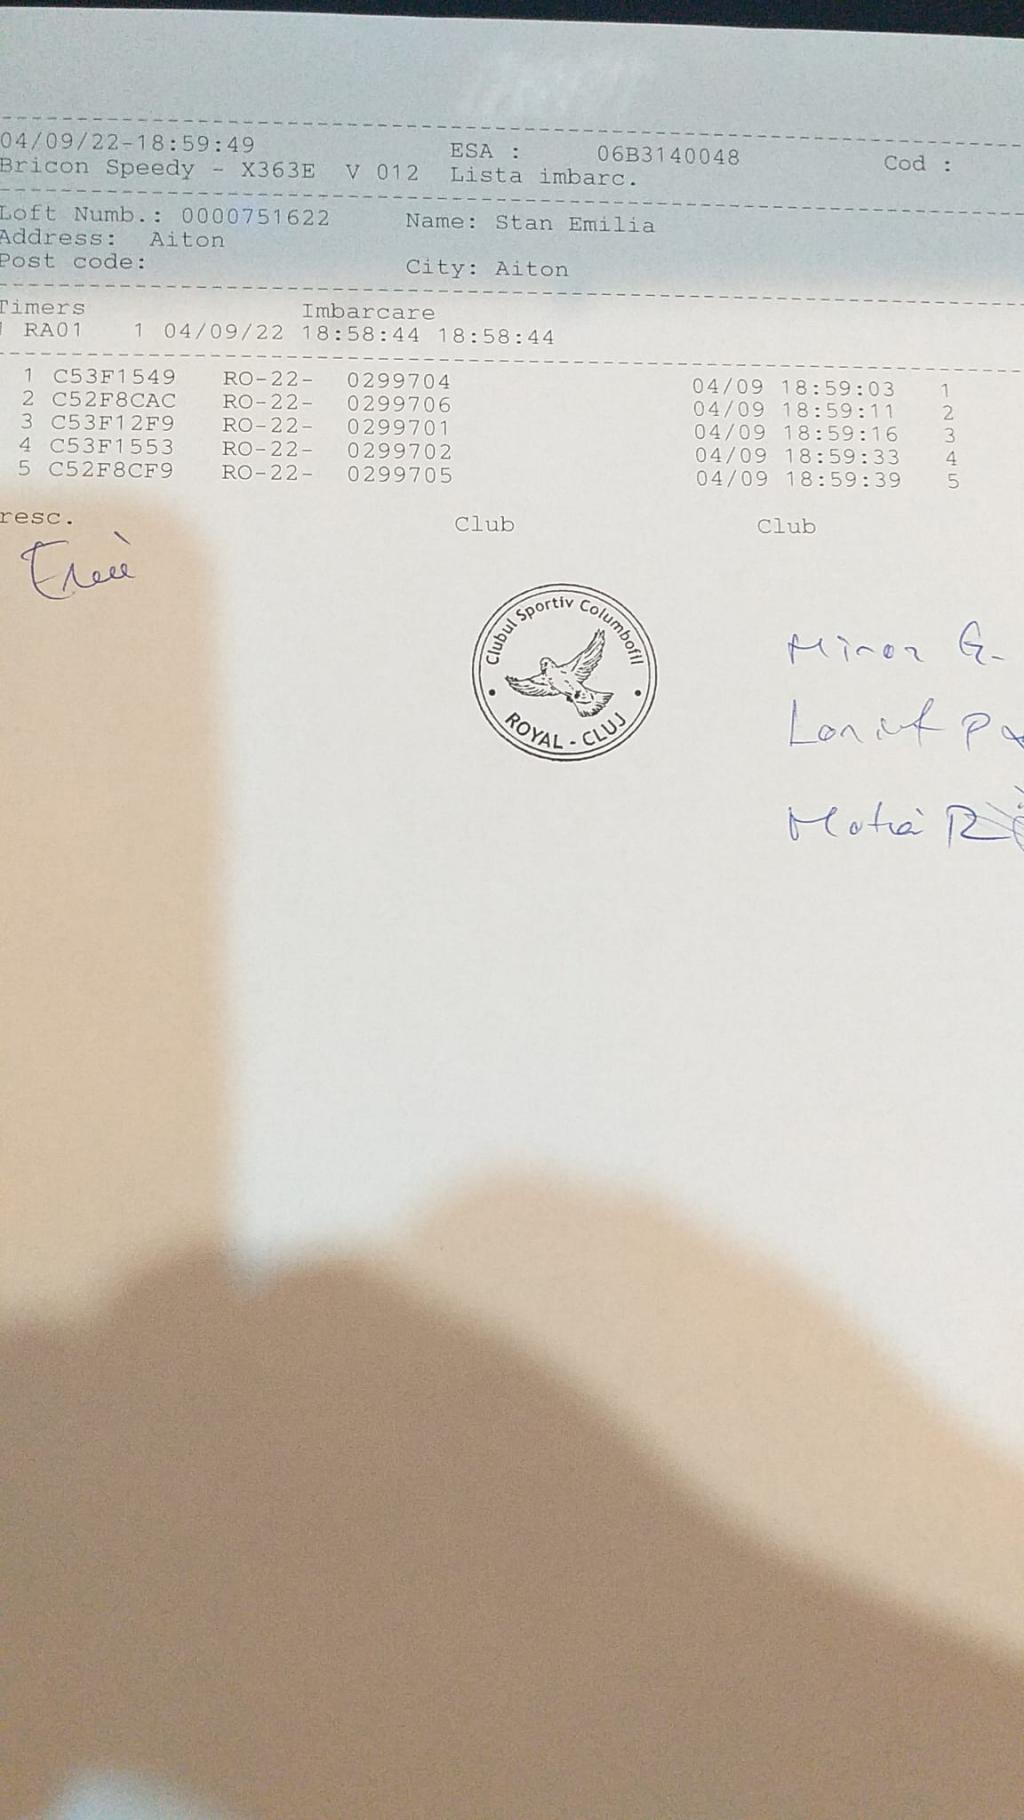 04/09/22-18:59:49 ESA : 06B3140048 Cod :
Bricon Speedy - X363E V 012 Lista imbarc.
Loft Numb.: 0000751622 Name: Stan Emilia
Address: Aiton
Post code: City: Aiton
Timers Imbarcare
RA01 1 04/09/22 18:58:44 18:58:44
1 C53F1549 RO-22- 0299704 04/09 18:59:03 1
2 C52F8CAC RO-22- 0299706 04/09 18:59:11 2
3 C53F12F9 RO-22- 0299701 04/09 18:59:16 3
4 C53F1553 RO-22- 0299702 04/09 18:59:33 4
5 C52F8CF9 RO-22- 0299705 04/09 18:59:39 5
resc. Club Club
Clubul Sportiv Columbofil
ROYAL - CLUJ